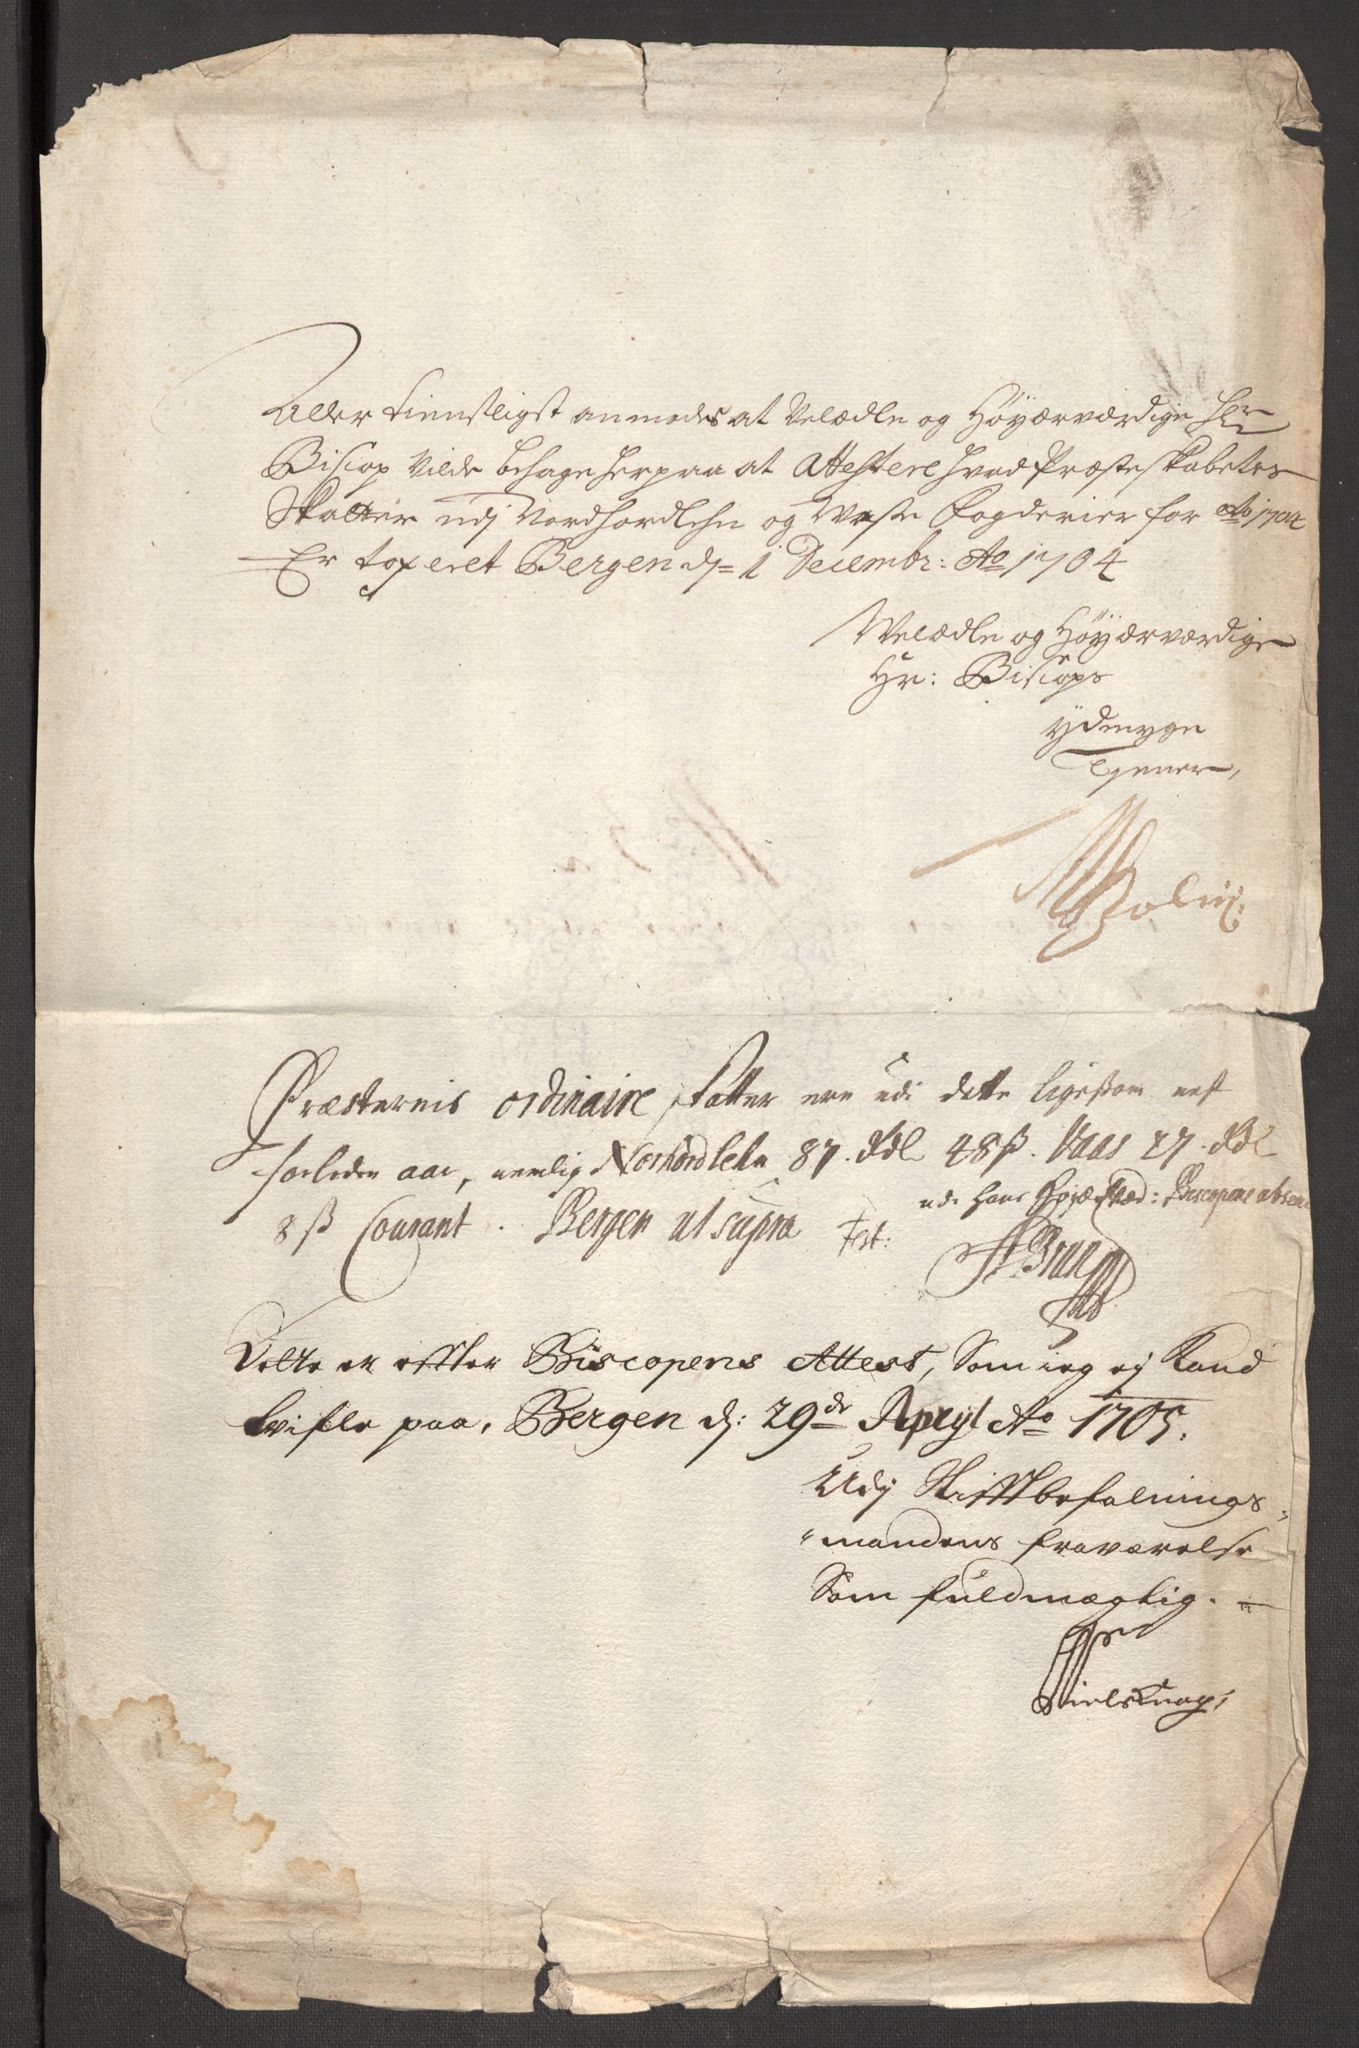 Aller tienstligst anmodes at Velædle og Höyærværdige Hr
Biscop Vilde behage herpaa at Attestere hvad Præsteskabetes
Skatter udj Nordhordlehn og Wosse Fogderier for Ao 1704
Er taxeret Bergen dj= 1 Decembr: Ao 1704
Welædle og Höyærværdige
Hr: Biscops
ydmyge
Tjener,
Præsternis ordinaire skatter ere udi dette ligesom nest
forleden aar, nemlig Norhordlehn 87. Rdl 48 ß. Vaas 27. Rdl
8 ß Courant. Bergen ut supra Test:
udi Hans Biscopens absen
Brun
Dette er effter Biscopens Attest, Som ieg ej Kand
tvifle paa, Bergen dj: 29de Apryl Ao 1705.
Udj Stifftbefalnings-
mandens fraværelse
Som fuldmægtig.
Niels Knag